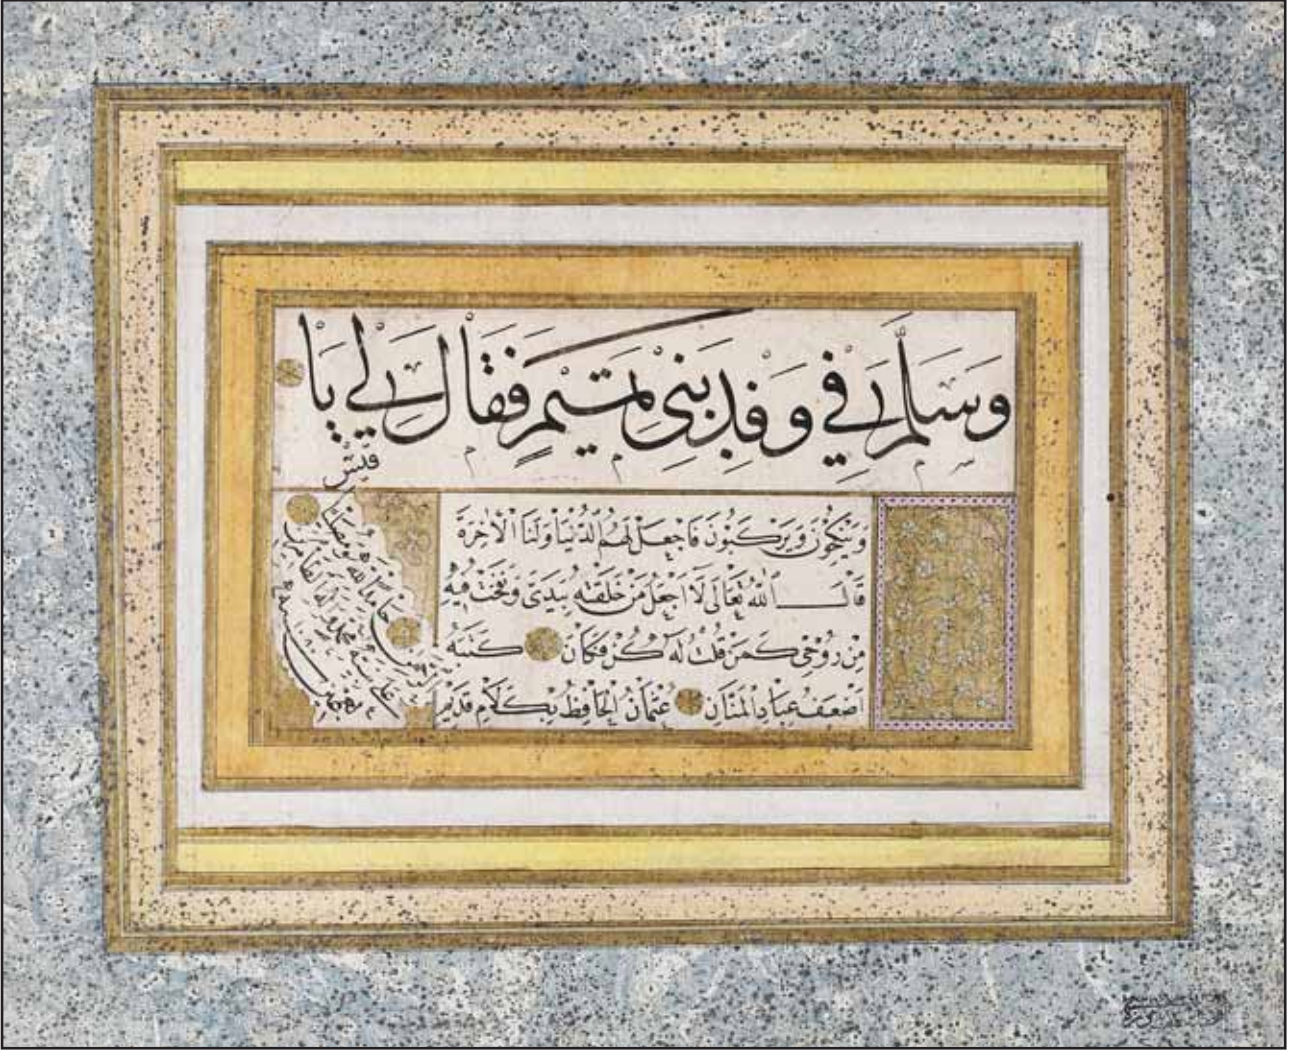 وَسَلَّمَ فِي وَفْدِ بَنِي تَمِيمٍ فَقَالَ لِي يَا
قَيْسُ
وَيَنْكِحُونَ وَيَرْكَبُونَ فَاجْعَلْ لَهُمُ الدُّنْيَا وَلَنَا الْاٰخِرَةَ
قَالَ اللّٰهُ تَعَالٰى لَا اَجْعَلُ مَنْ خَلَقْتُهُ بِيَدَيَّ وَنَفَخْتُ فِيهِ
مِنْ رُوحِي كَمَنْ قُلْتُ لَهُ كُنْ فَكَانَ كَتَبَهُ
اَضْعَفُ عِبَادِ الْمَنَّانِ عُثْمَانُ الْحَافِظُ بِكَلَامِ قَدِيمِ
حامدا لله
على نبيه محمد وآله